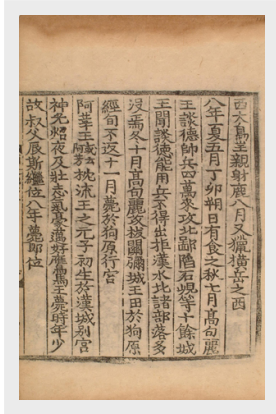 西大島王親射鹿八月又獵橫岳之西
八年夏五月丁卯朔日有食之秋七月高句麗
王談德帥兵四萬來攻北鄙陷石峴等十餘城
王聞談德能用兵不得出拒漢水北諸部落多
沒焉冬十月高句麗攻拔關彌城王田於狗原
經旬不返十一月薨於狗原行宮
阿莘王或云阿芳枕流王之元子初生於漢城别宮
神光炤夜及壯志氣豪邁好鷹馬王薨時年少
故叔父辰斯繼位八年薨即位